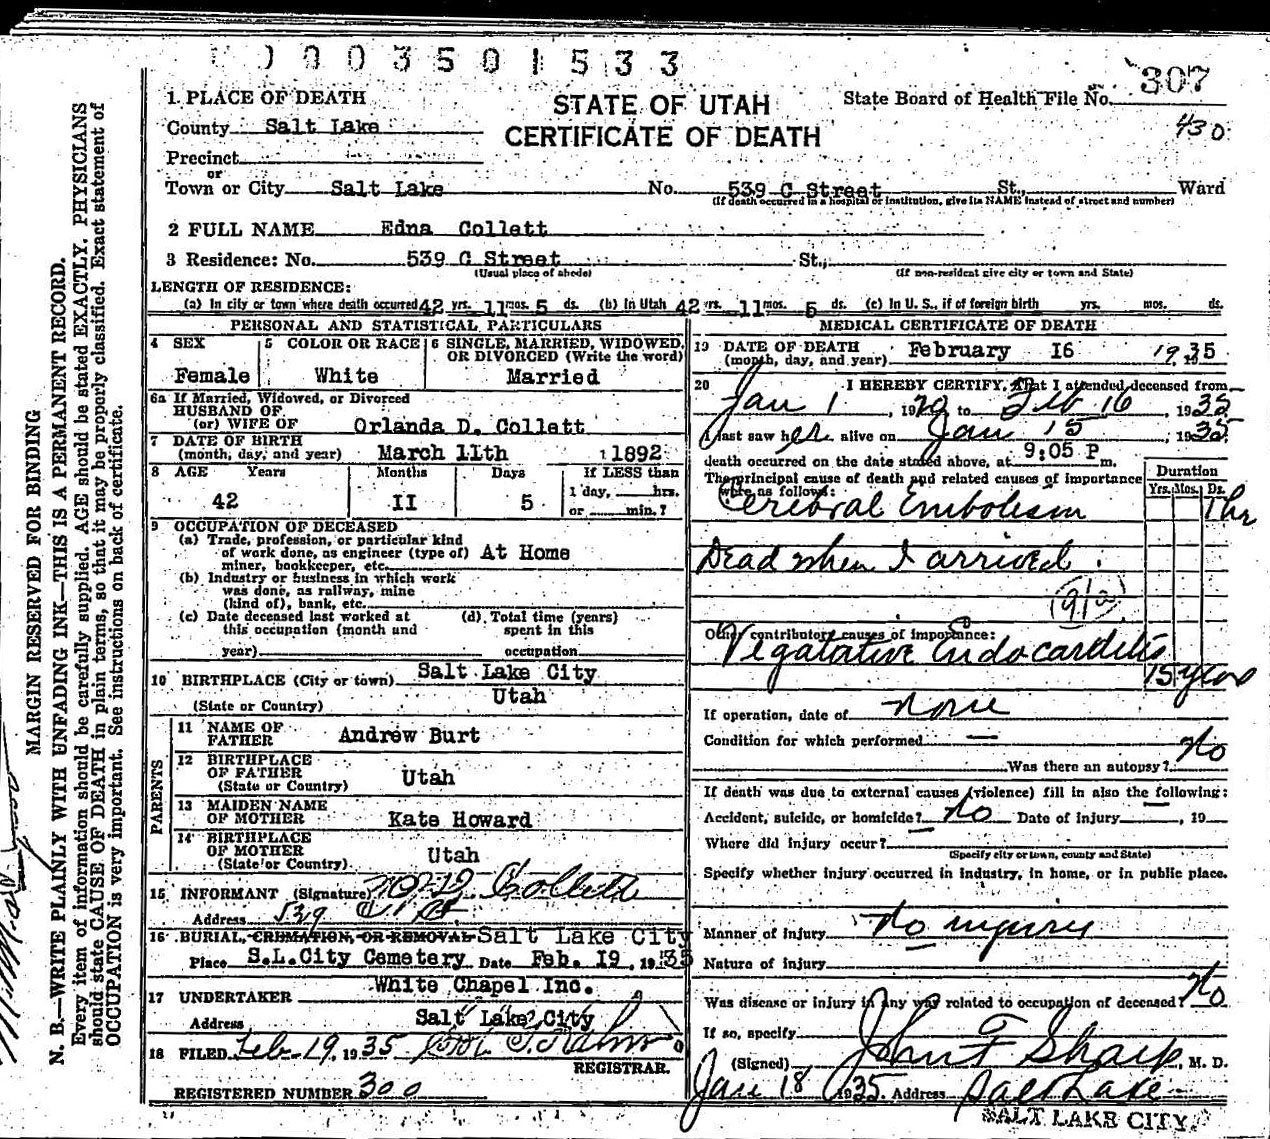 0003501533
1. PLACE OF DEATH
STATE OF UTAH
CERTIFICATE OF DEATH
State Board of Health File No. 307
430
County Salt Lake
Precinct
or
Town or City Salt Lake No. 539 C Street St., Ward
(If death occurred in a hospital or institution, give its NAME instead of street and number)
2 FULL NAME Edna Collett
3 Residence: No. 539 C Street St.,
(Usual place of abode) (If non-resident give city or town and State)
LENGTH OF RESIDENCE:
(a) In city or town where death occurred 42 yrs. 11 mos. 5 ds. (b) In Utah 42 yrs. 11 mos. 5 ds. (c) In U. S., if of foreign birth yrs. mos. ds.
PERSONAL AND STATISTICAL PARTICULARS
4 SEX
Female
5 COLOR OR RACE
White
6 SINGLE, MARRIED, WIDOWED, OR DIVORCED (Write the word)
Married
6a If Married, Widowed, or Divorced
HUSBAND OF
(or) WIFE OF Orlanda D. Collett
7 DATE OF BIRTH
(month, day, and year) March 11th 1892
8 AGE Years Months Days If LESS than
42 II 5 1 day, hrs.
or min.?
9 OCCUPATION OF DECEASED
(a) Trade, profession, or particular kind
of work done, as engineer (type of) At Home
miner, bookkeeper, etc.
(b) Industry or business in which work
was done, as railway, mine
(kind of), bank, etc.
(c) Date deceased last worked at
this occupation (month and
year)
(d) Total time (years)
spent in this
occupation
10 BIRTHPLACE (City or town) Salt Lake City
(State or Country) Utah
PARENTS
11 NAME OF
FATHER Andrew Burt
12 BIRTHPLACE
OF FATHER Utah
(State or Country)
13 MAIDEN NAME
OF MOTHER Kate Howard
14 BIRTHPLACE
OF MOTHER Utah
(State or Country)
15 INFORMANT (Signature) Collett
Address 539 C St
16 BURIAL, CREMATION, OR REMOVAL Salt Lake City
Place S.L.City Cemetery Date Feb. 19, 1935
17 UNDERTAKER White Chapel Inc.
Address Salt Lake City
18 FILED Feb 19, 1935
REGISTRAR.
REGISTERED NUMBER 300
MEDICAL CERTIFICATE OF DEATH
19 DATE OF DEATH
(month, day, and year) February I6 1935
20 I HEREBY CERTIFY, That I attended deceased from
Jan 1, 1929 to Feb 16, 1935
I last saw her alive on Jan 15, 1935
death occurred on the date stated above, at 9:05 P m.
The principal cause of death and related causes of importance
were as follows:
Duration
Yrs. Mos. Ds.
Cerebral Embolism 1 hr
Dead when I arrived.
Other contributory causes of importance:
Vegatative Endocarditis
15 years
If operation, date of none
Condition for which performed —
Was there an autopsy? No
If death was due to external causes (violence) fill in also the following:
Accident, suicide, or homicide? No Date of injury , 19
Where did injury occur?
(Specify city or town, county and State)
Specify whether injury occurred in industry, in home, or in public place.
Manner of injury No injury
Nature of injury
Was disease or injury in any way related to occupation of deceased? No
If so, specify
(Signed) John F Sharp, M. D.
Jan 18 1935 Address Salt Lake
SALT LAKE CITY
MARGIN RESERVED FOR BINDING
N. B.—WRITE PLAINLY WITH UNFADING INK—THIS IS A PERMANENT RECORD.
Every item of information should be carefully supplied. AGE should be stated EXACTLY. PHYSICIANS
should state CAUSE OF DEATH in plain terms, so that it may be properly classified. Exact statement of
OCCUPATION is very important. See instructions on back of certificate.